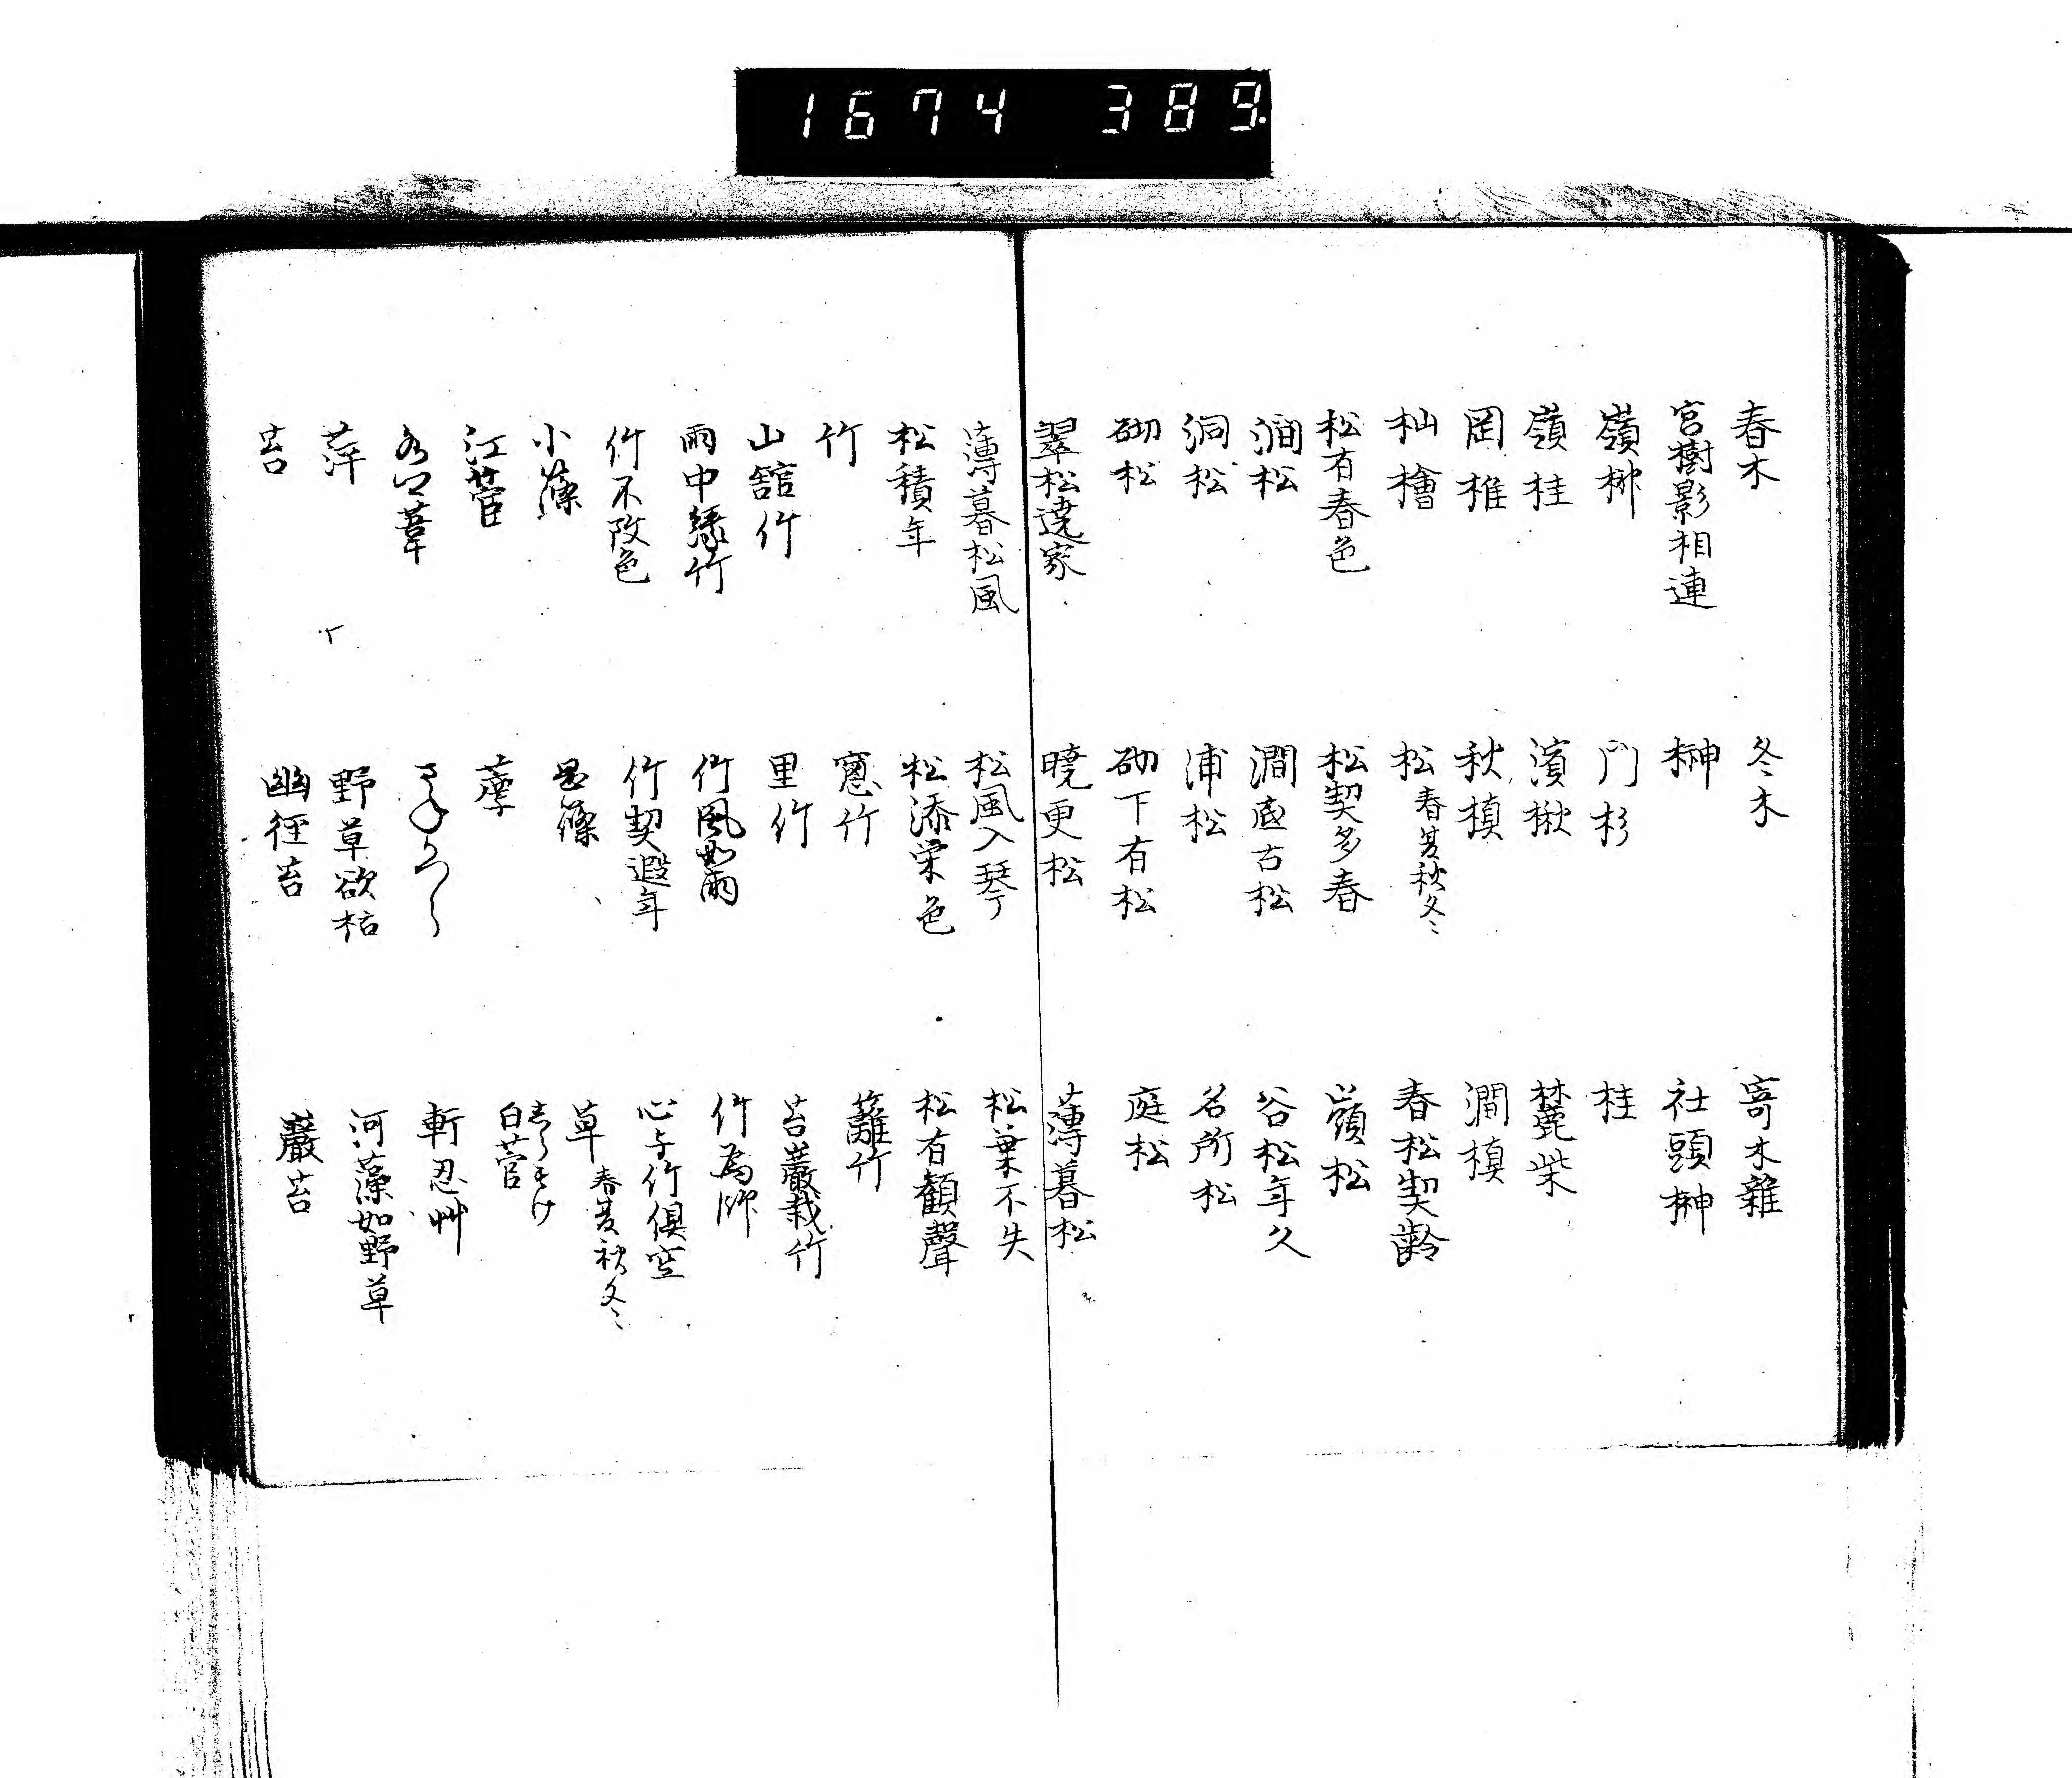 春木
冬木
寄木雜
宮樹影相連
榊
社頭榊
嶺柳
門杉
桂
嶺桂
濱楸
麓柴
岡椎
秋槙
澗槙
杣檜
松 春夏秋冬
春松契齢
松有春色
松契多春
嶺松
澗松
澗底古松
谷松年久
洞松
浦松
名所松
砌松
砌下有松
庭松
翠松遶家
曉更松
薄暮松
薄暮松風
松風入琴
松葉不失
松積年
松添栄色
松有歡聲
竹
窓竹
籬竹
山館竹
里竹
苔巖栽竹
雨中緑竹
竹風如雨
竹為師
竹不改色
竹契遐年
心与竹倶空
小篠
篠
草 春夏秋冬
江菅
白菅
葦
さねかつら
軒忍艸
萍
野草欲枯
河藻如野草
苔
幽徑苔
巖苔
1674 389